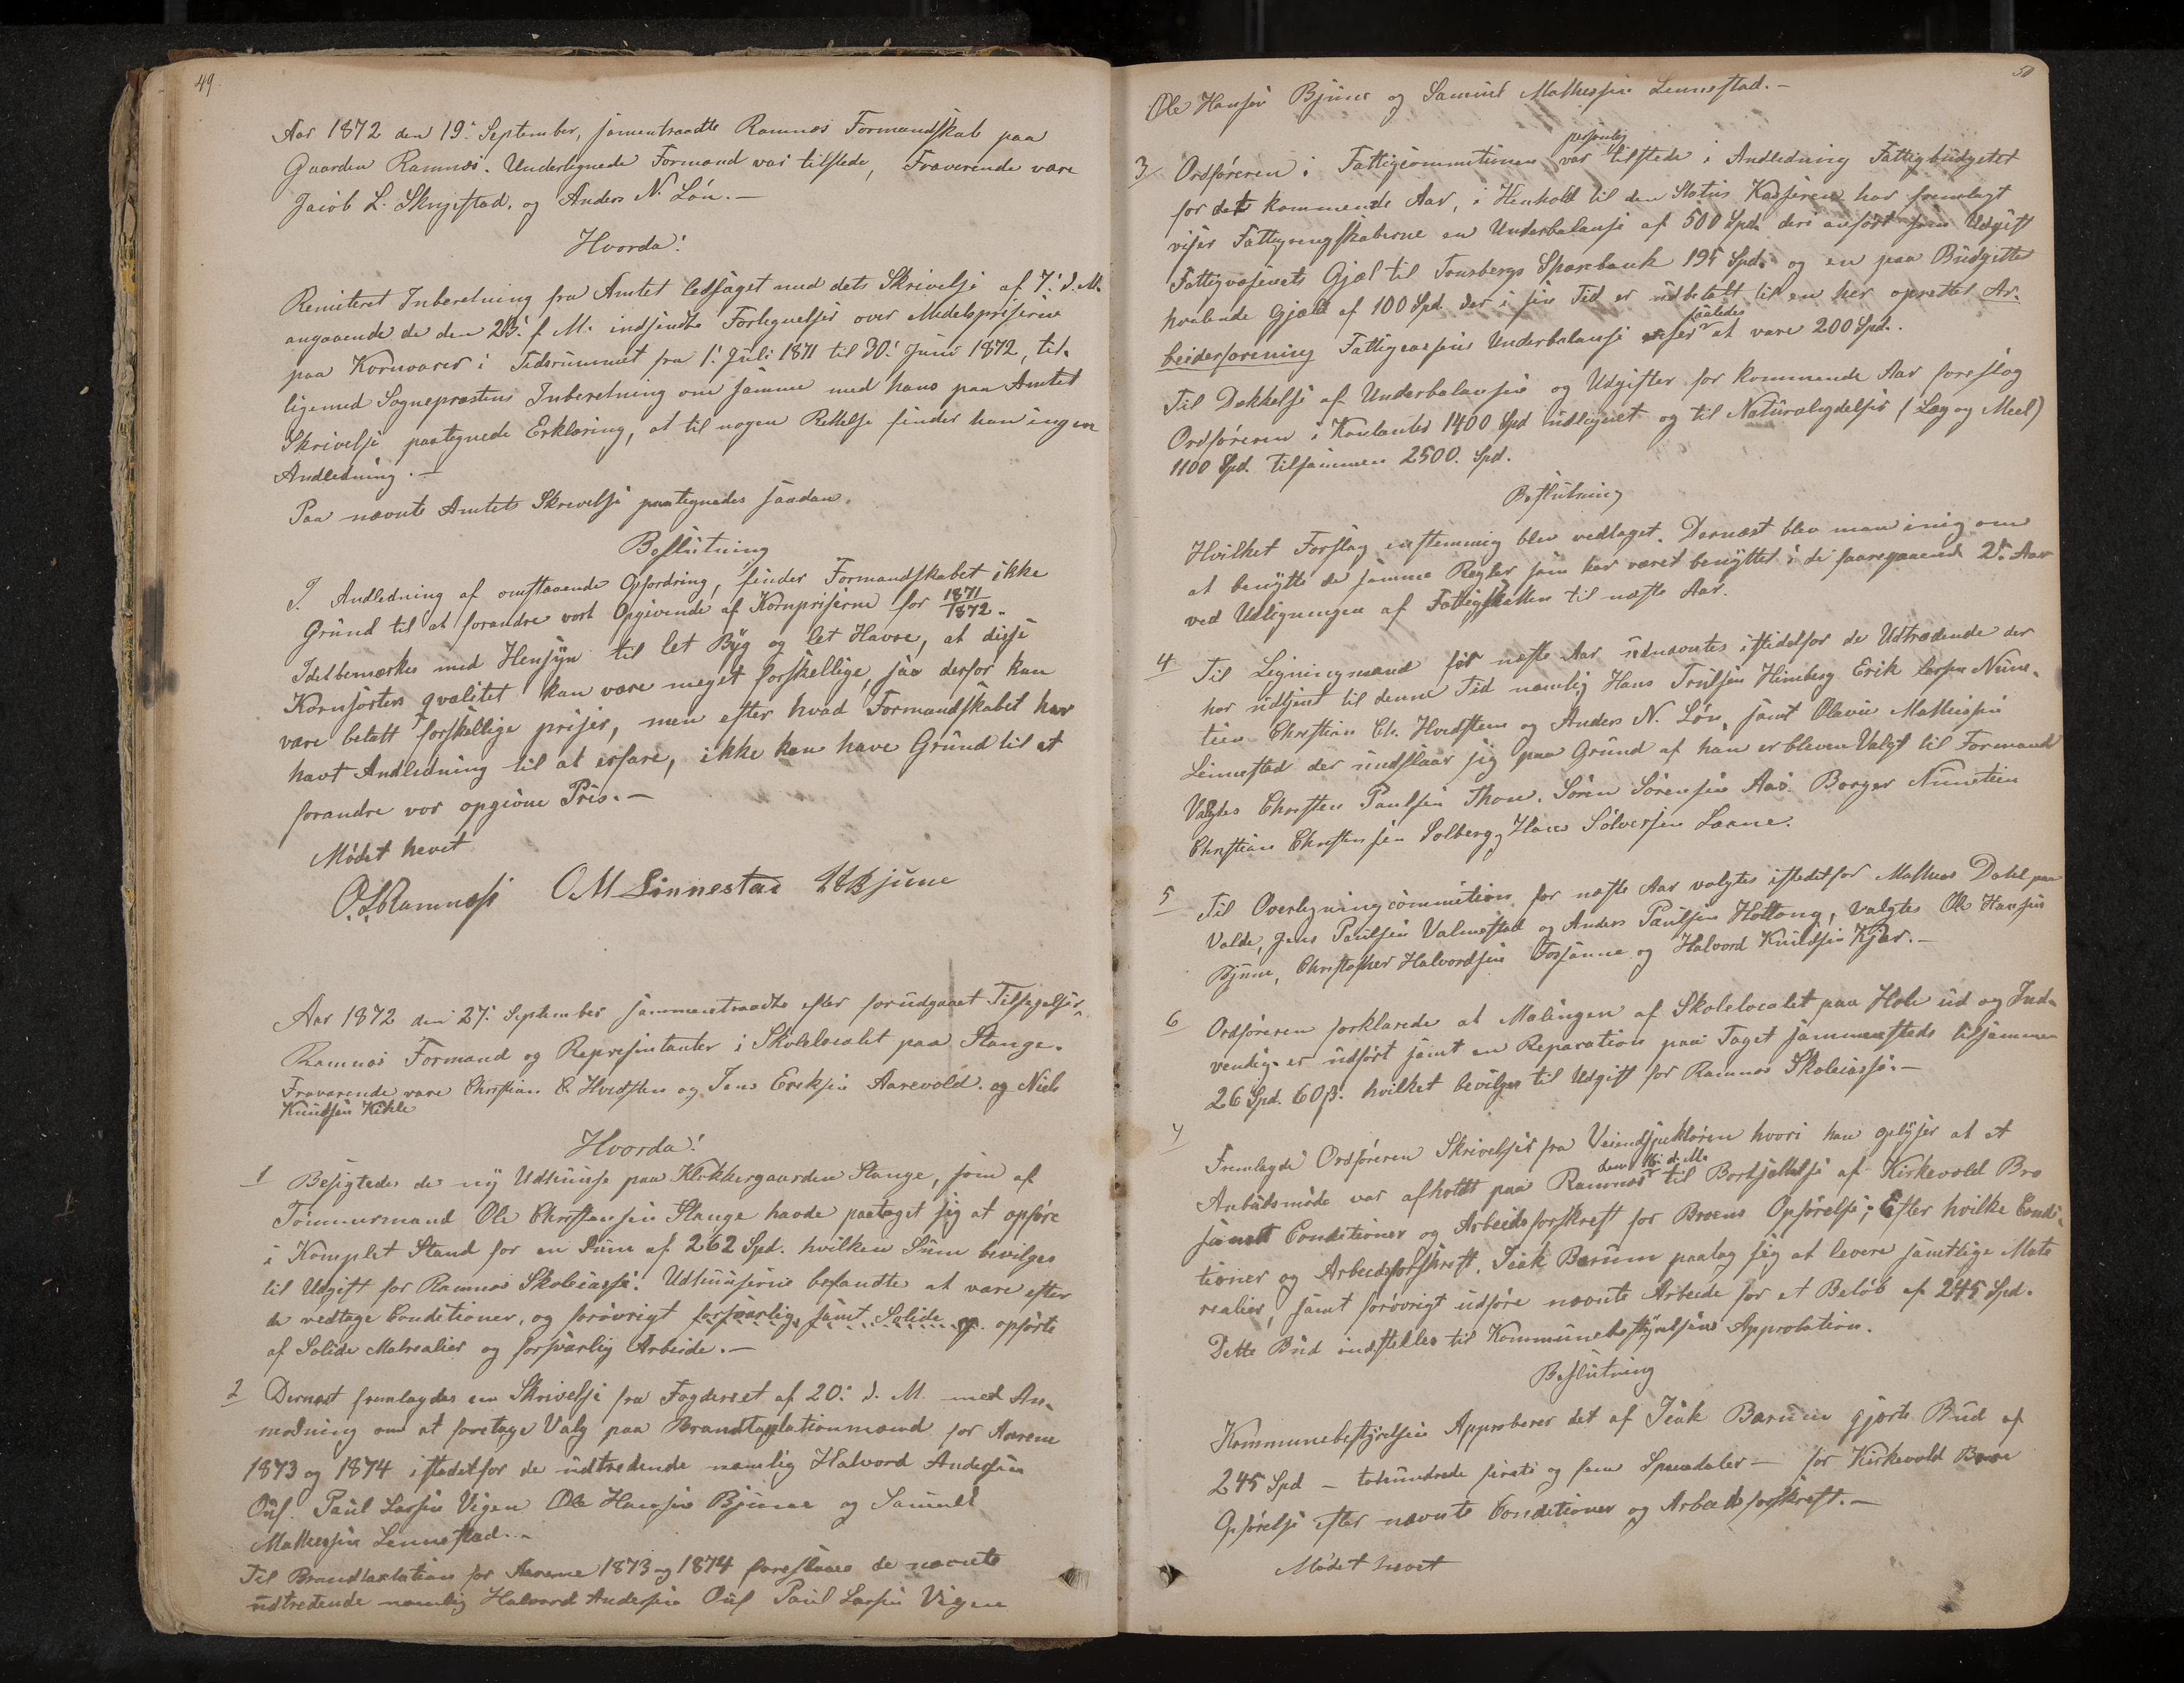 49
Aar 1872 den 19: September, samentraadte Ramnæs Formandskab paa
Gaarden Ramnæs. Undertegnede Formænd var tilstede, Fraværende vare
Jacob L. Skrygstad, og Anders N. Lön. —
Hvorda:
Remiteret Inberetning fra Amtet ledsaget med dets Skrivelse af 7: d. M.
angaaende de den 23: f. M. indsendte Fortegnelser over Medelspriserne
paa Kornvarer i Tidsrummet fra 1: Juli 1871 til 30: Juni 1872, til-
ligemed Sogneprestens Inberetning om samme med hans paa Amtet
Skrivelse paategnede Erklæring, at til nogen Rettelse finder han ingen
Andledning. —
Paa nævnte Amtets Skrivelse paategnedes saadan.
Beslutning
I Andledning af omstaaende Opfordring, finder Formandskabet ikke
Grund til at forandre vort Opgivende af Kornpriserne for 1871/1872.
Idet bemærkes med Hensyn til let Byg og let Havre, at disse
Kornsorters qvalitet kan være meget forskellige, saa derfor kan
være betalt forskellige priser, men efter hvad Formandskabet har
havt Andledning til at erfare, ikke kan have Grund til at
forandre vor opgivne Pris. —
Mødet hevet
O. L. Ramnæs O M Linnestad H H Bjune
Aar 1872 den 27: September sammentraadte efter forudgaaet Tilsigelse,
Ramnæs Formænd og Represintanter i Skolelocalet paa Stange.
Fraværende vare Christian C. Hvidsten og Jens Eriksen Aarevold. og Niels
Knudsen Kihle
Hvorda:
1 Besigtedes de ny Udhuuse paa Klokkergaarden Stange, som af
Tømmermand Ole Christensen Stange havde paataget sig at opføre
i Komplet Stand for en Sum af 262 Spd. hvilken Sum bevilges
til Udgift for Ramnæs Skolecasse. Udhuuserne befandtes at være efter
de vedtagne Conditioner, og forøvrigt forsvarlig samt Solide og opførte
af Solide Matrealier og forsvarlig Arbeide. —
2 Dernæst fremlagdes en Skrivelse fra Fogderiet af 20: d. M. med An-
modning om at foretage Valg paa Brandtaxtationmænd for Aarene
1873 og 1874 istedetfor de udtredende nemlig Halvord Andersen
Ouf. Paul Larsen Vigen Ole Hansen Bjune og Samuel
Mathesen Lennestad. —
Til Brandtaxtation for Aarene 1873 og 1874 foreslaaes de nævnte
udtredende nemlig Halvord Andersen Ouf Paul Larsen Vigen
50
Ole Hansen Bjune og Samuel Mathesen Lennestad. —
3 Ordføreren i Fattigcommitionen var personlig tilstede i Andledning Fattigbudgetet
for det kommende Aar, i Henhold til den Status Kasseren har fremlagt
viser Fattigregnskaberne en Underbalanse af 500 Spd. deri anført som Udgift
Fattigvæsenets Gjæl til Tønsbergs Sparebank 195 Spd. og en paa Budgettet
hvalende Gjæld af 100 Spd. der i sin Tid er udbetalt til en her oprettet Ar-
beiderforening Fattigcassens Underbalanse viser saaledes at være 200 Spd.
Til Dækkelse af Underbalansen og Udgifter for kommende Aar foreslog
Ordføreren i Kontanter 1400 Spd udlignet og til Naturalydelser (Læg og Meel)
1100 Spd. tilsammen 2500. Spd.
Beslutning
Hvilket Forslag enstemmig blev vedtaget. Dernæst blev man enig om
at benytte de samme Regler som har været benyttet i de foregaaende 2: Aar
ved Udligningen af Fattigskatten til næste Aar.
4 Til Ligningsmænd for næste Aar udnævntes istedetfor de Udtrædende der
har udtjent til denne Tid nemlig Hans Trulsen Himberg Erik Larsen Nune-
tien Christian Ch. Hvidsten og Anders N. Lön, samt Olaus Mathisen
Lennestad der undslaar sig paa Grund af han er bleven Valgt til Formand
Valgtes Christen Paulsen Thon, Søren Sørensen Aas. Borger Nunetien
Christian Christensen Solberg, Hans Sølversen Laane.
5 Til Overligningcommition for næste Aar valgtes istedetfor Mathias Dahl paa
Valde, Jens Paulsen Valmestad og Anders Paulsen Holtong, Valgtes Ole Hansen
Bjune, Christopher Halvordsen Fossanne og Halvord Knudsen Kjær. —
6 Ordføreren forklarede at Malingen af Skolelocalet paa Hole ud og Ind-
vendig er udført samt en Reparation paa Taget sammesteds tilsammen
26 Spd. 60 β. hvilket bevilges til Udgift for Ramnæs Skolecasse. —
7 Fremlagde Ordføreren Skrivelser fra Veiendspektøren hvori han oplyser at et
Anbudsmøde var afholdt paa Ramnæs den 16: d. M. til Bortsættelse af Kirkevold Bro
samt Conditioner og Arbeidsforskrift for Broens Opførelse; Efter hvilke Condi-
tioner og Arbeidsforskrift. Isak Barum paatog sig at levere samtlige Mate
realier, samt forøvrigt udføre nævnte Arbeide for et Beløb af 245 Spd.
Dette Bud indstilles til Kommunebestyrelsens Approbation.
Beslutning
Kommunebestyrelsen Approberer det af Isak Barum gjorte Bud af
245 Spd — tohundrede firti og fem Speciedaler — for Kirkevold Broe
Opførelse efter nævnte Conditioner og Arbeidsforskrift. —
Mødet hævet